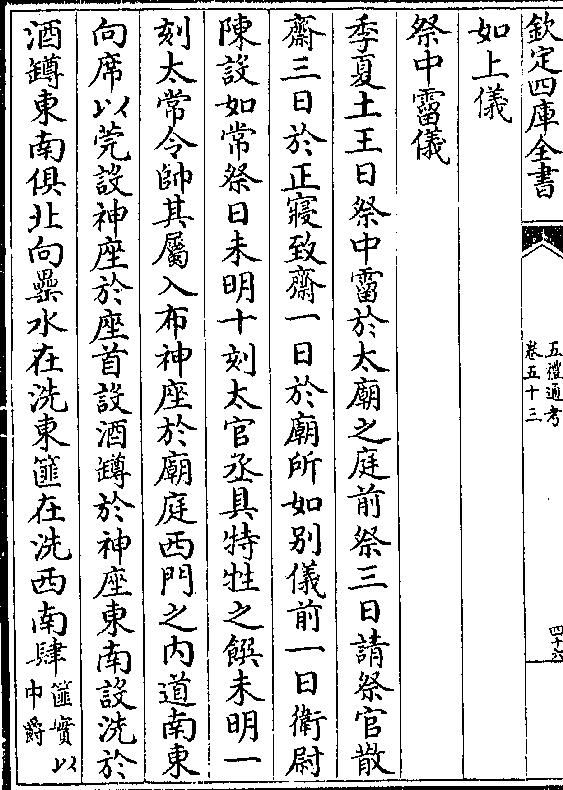 欽定四庫全書
五禮通考
卷五十三
四十六
如上儀
祭中霤儀
季夏土王日祭中霤於太廟之庭前祭三日請祭官散
齋三日於正寢致齋一日於廟所如别儀前一日衛尉
陳設如常祭日未明十刻太官丞具特牲之饌未明一
刻太常令帥其屬入布神座於廟庭西門之内道南東
向席以莞設神座於座首設酒罇於神座東南設洗於
酒罇東南俱北向罍水在洗東篚在洗西南肆篚實以中爵